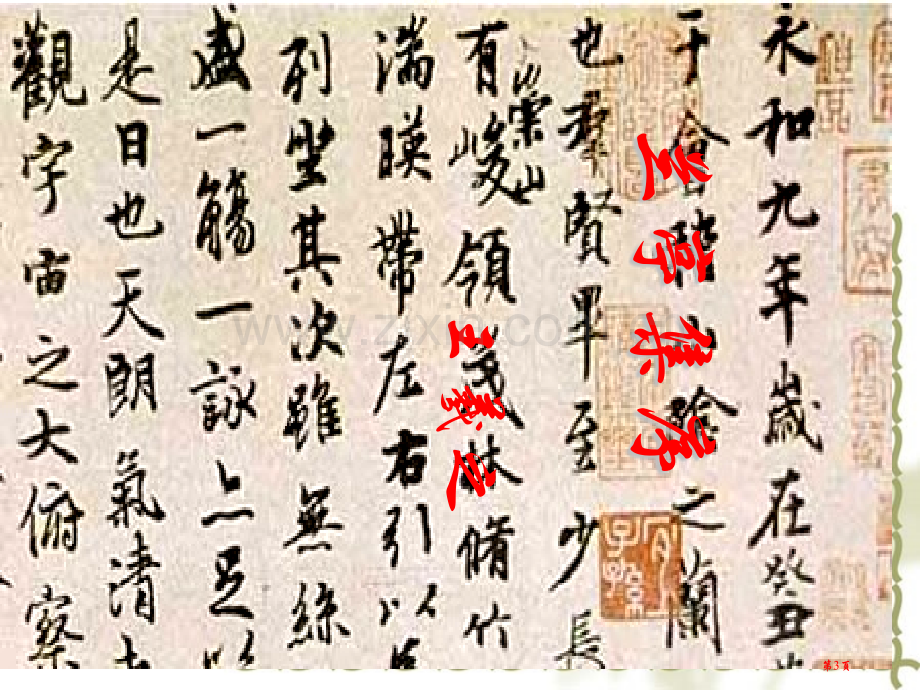 永和九年歲在癸丑
兰亭集序
于會稽山陰之蘭
也羣賢畢至少長
崇山
有峻領茂林脩竹
王羲之
湍暎帶左右引以
列坐其次雖無絲
盛一觴一詠亦足以
是日也天朗氣清
觀宇宙之大俯察
www.zixin.com.cn
第3页